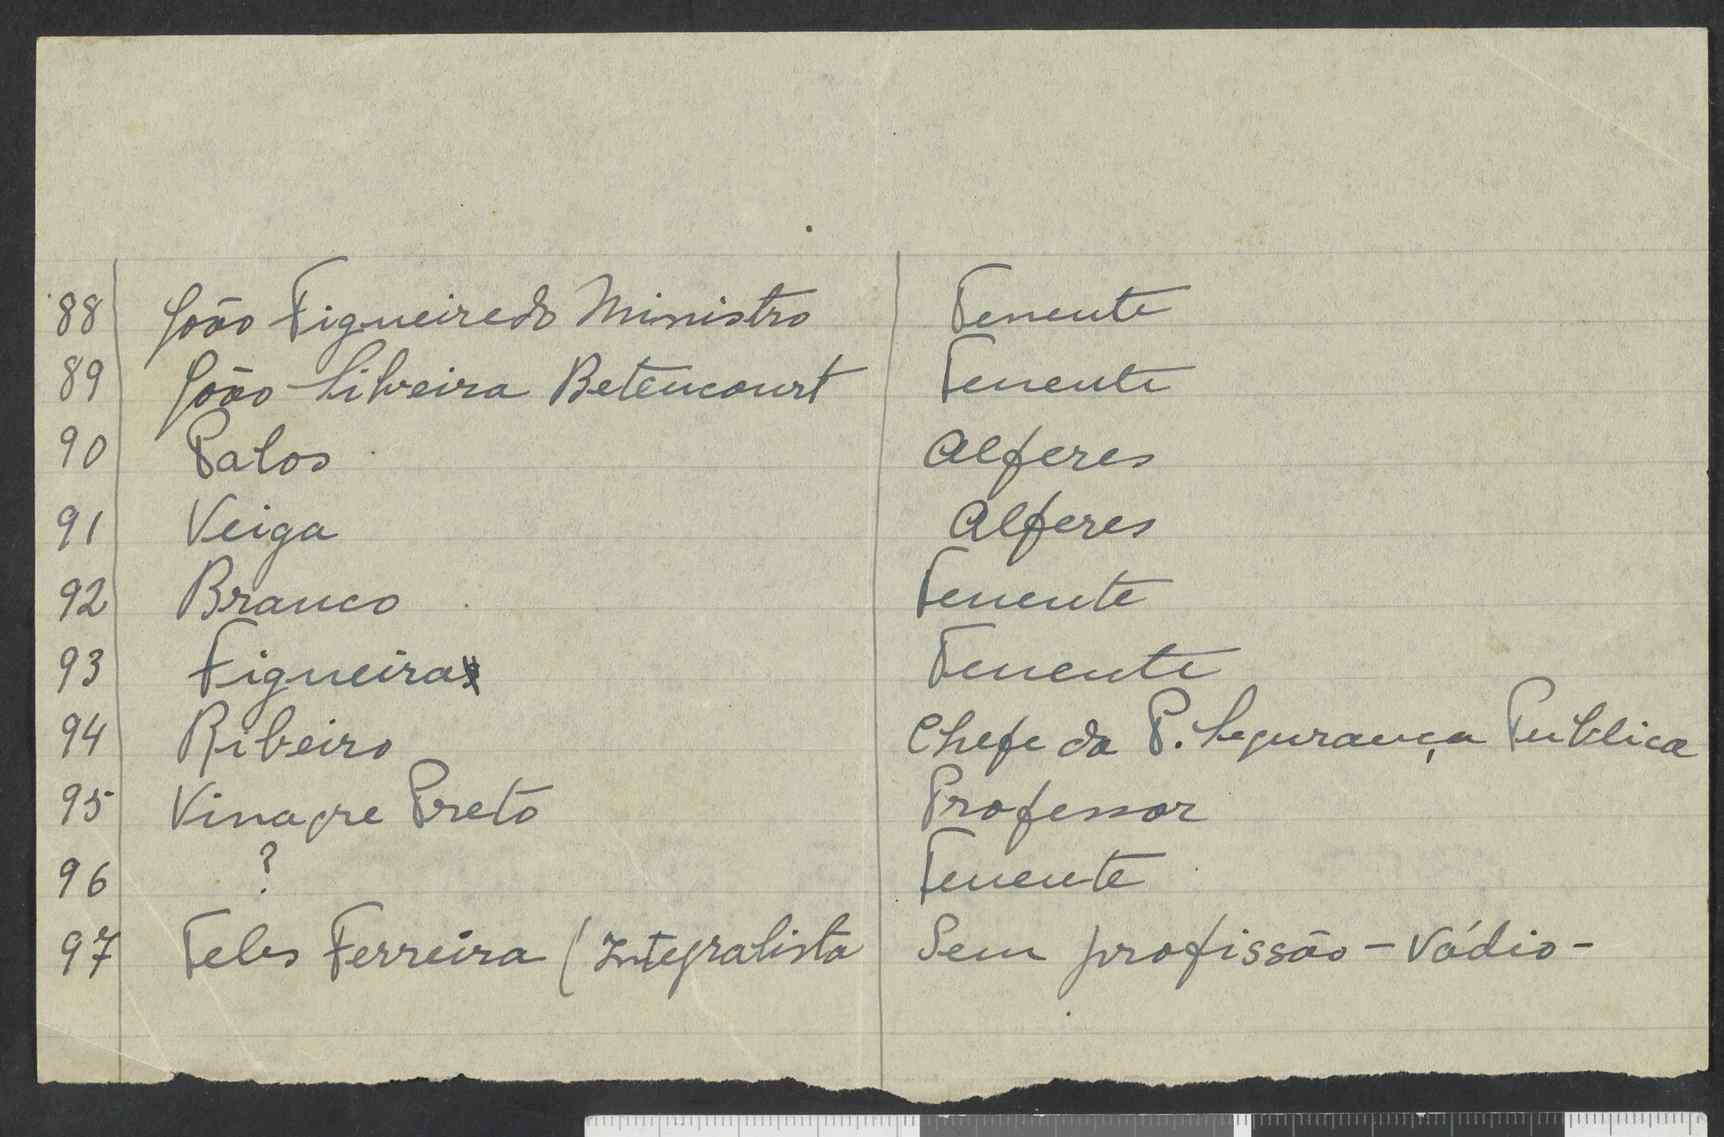 88 João Figueiredo Ministro Tenente
89 João Silveira Betencourt Tenente
90 Palos Alferes
91 Veiga Alferes
92 Branco Tenente
93 Figueira Tenente
94 Ribeiro Chefe da P. Segurança Publica
95 Vinagre Preto Professor
96 ? Tenente
97 Teles Ferreira (Integralista Sem profissão - Vádio -